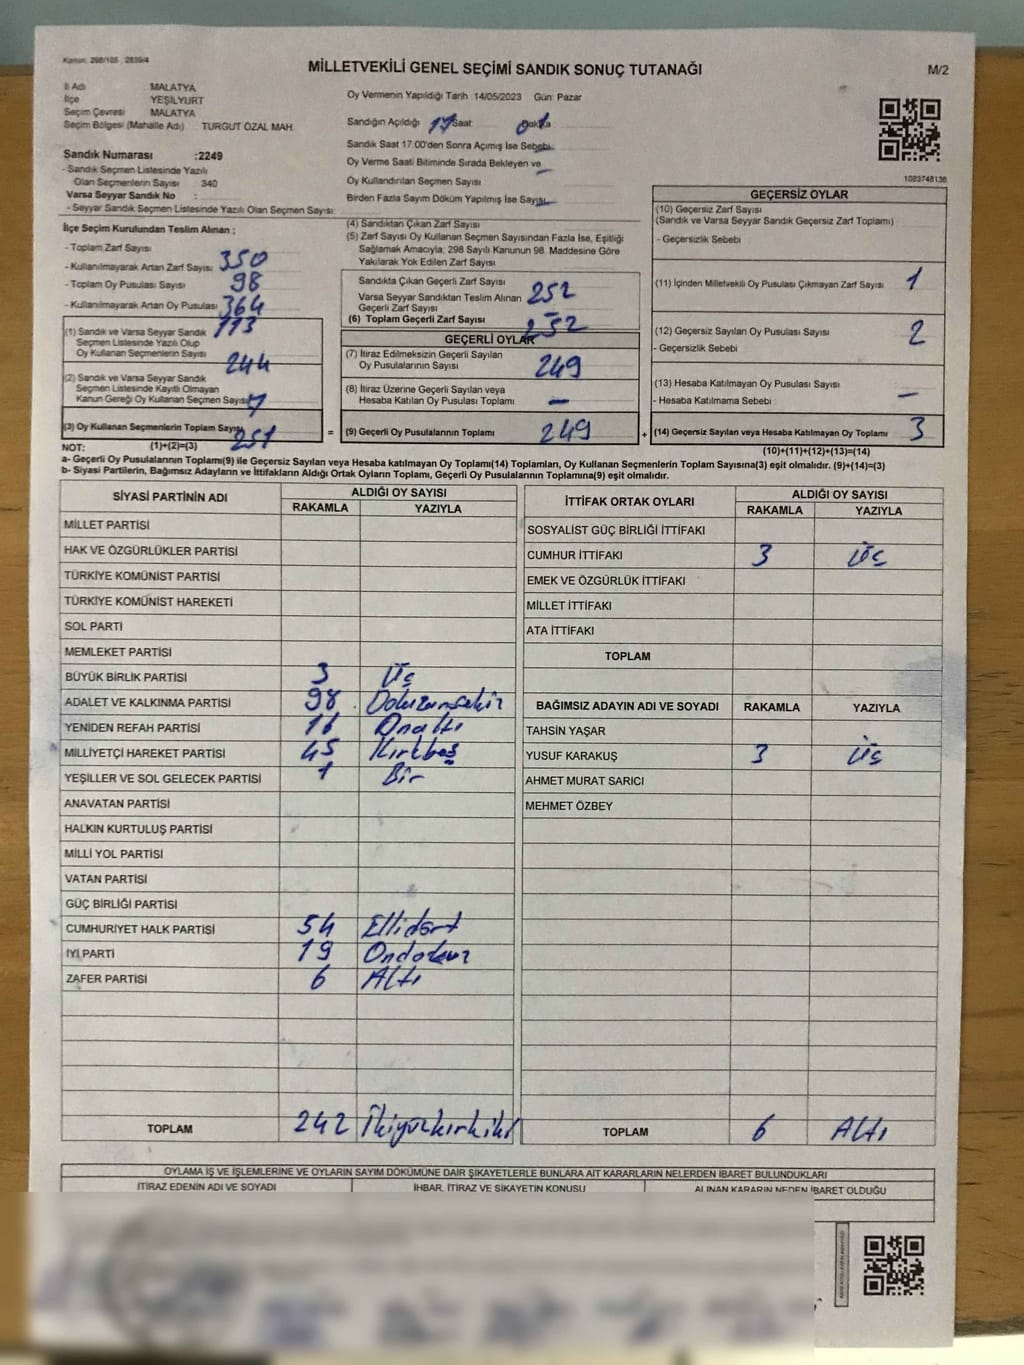 Kanun: 298/105 , 2839/4
MİLLETVEKİLİ GENEL SEÇİMİ SANDIK SONUÇ TUTANAĞI
M/2
İl Adı MALATYA
İlçe YEŞİLYURT
Seçim Çevresi MALATYA
Seçim Bölgesi (Mahalle Adı) TURGUT ÖZAL MAH.
Sandık Numarası :2249
- Sandık Seçmen Listesinde Yazılı
Olan Seçmenlerin Sayısı 340
Varsa Seyyar Sandık No :
- Seyyar Sandık Seçmen Listesinde Yazılı Olan Seçmen Sayısı:
Oy Vermenin Yapıldığı Tarih 14/05/2023 Gün: Pazar
Sandığın Açıldığı 17 Saat
Sandık Saat 17.00'den Sonra Açımış İse Sebebi
Oy Verme Saati Bitiminde Sırada Bekleyen ve
Oy Kullandırılan Seçmen Sayısı
Birden Fazla Sayım Döküm Yapılmış İse Sayısı
1083748136
İlçe Seçim Kurulundan Teslim Alınan ;
- Toplam Zarf Sayısı 350
- Kullanılmayarak Artan Zarf Sayısı 98
- Toplam Oy Pusulası Sayısı 364
- Kullanılmayarak Artan Oy Pusulası 113
(1) Sandık ve Varsa Seyyar Sandık
Seçmen Listesinde Yazılı Olup
Oy Kullanan Seçmenlerin Sayısı 244
(2) Sandık ve Varsa Seyyar Sandık
Seçmen Listesinde Kayıtlı Olmayan
Kanun Gereği Oy Kullanan Seçmen Sayısı 7
(3) Oy Kullanan Seçmenlerin Toplam Sayısı 251
(1)+(2)=(3)
(4) Sandıktan Çıkan Zarf Sayısı
(5) Zarf Sayısı Oy Kullanan Seçmen Sayısından Fazla İse, Eşitliği
Sağlamak Amacıyla; 298 Sayılı Kanunun 98. Maddesine Göre
Yakılarak Yok Edilen Zarf Sayısı
Sandıkta Çıkan Geçerli Zarf Sayısı 252
Varsa Seyyar Sandıktan Teslim Alınan
Geçerli Zarf Sayısı
(6) Toplam Geçerli Zarf Sayısı 252
GEÇERLİ OYLAR
(7) İtiraz Edilmeksizin Geçerli Sayılan
Oy Pusulalarının Sayısı 249
(8) İtiraz Üzerine Geçerli Sayılan veya
Hesaba Katılan Oy Pusulası Toplamı —
= (9) Geçerli Oy Pusulalarının Toplamı 249
GEÇERSİZ OYLAR
(10) Geçersiz Zarf Sayısı
(Sandık ve Varsa Seyyar Sandık Geçersiz Zarf Toplamı)
- Geçersizlik Sebebi
(11) İçinden Milletvekili Oy Pusulası Çıkmayan Zarf Sayısı 1
(12) Geçersiz Sayılan Oy Pusulası Sayısı 2
- Geçersizlik Sebebi
(13) Hesaba Katılmayan Oy Pusulası Sayısı
- Hesaba Katılmama Sebebi —
+ (14) Geçersiz Sayılan veya Hesaba Katılmayan Oy Toplamı 3
(10)+(11)+(12)+(13)=(14)
NOT:
a- Geçerli Oy Pusulalarının Toplamı(9) ile Geçersiz Sayılan veya Hesaba katılmayan Oy Toplamı(14) Toplamları, Oy Kullanan Seçmenlerin Toplam Sayısına(3) eşit olmalıdır. (9)+(14)=(3)
b- Siyasi Partilerin, Bağımsız Adayların ve İttifakların Aldığı Ortak Oyların Toplamı, Geçerli Oy Pusulalarının Toplamına(9) eşit olmalıdır.
SİYASİ PARTİNİN ADI ALDIĞI OY SAYISI
RAKAMLA YAZIYLA
MİLLET PARTİSİ
HAK VE ÖZGÜRLÜKLER PARTİSİ
TÜRKİYE KOMÜNİST PARTİSİ
TÜRKİYE KOMÜNİST HAREKETİ
SOL PARTİ
MEMLEKET PARTİSİ
BÜYÜK BİRLİK PARTİSİ 3 Üç
ADALET VE KALKINMA PARTİSİ 98 Doksansekiz
YENİDEN REFAH PARTİSİ 16 Onaltı
MİLLİYETÇİ HAREKET PARTİSİ 45 Kırkbeş
YEŞİLLER VE SOL GELECEK PARTİSİ 1 Bir
ANAVATAN PARTİSİ
HALKIN KURTULUŞ PARTİSİ
MİLLİ YOL PARTİSİ
VATAN PARTİSİ
GÜÇ BİRLİĞİ PARTİSİ
CUMHURİYET HALK PARTİSİ 54 Ellidört
İYİ PARTİ 19 Ondokuz
ZAFER PARTİSİ 6 Altı
TOPLAM 242 İkiyüzkırkiki
İTTİFAK ORTAK OYLARI ALDIĞI OY SAYISI
RAKAMLA YAZIYLA
SOSYALİST GÜÇ BİRLİĞİ İTTİFAKI
CUMHUR İTTİFAKI 3 Üç
EMEK VE ÖZGÜRLÜK İTTİFAKI
MİLLET İTTİFAKI
ATA İTTİFAKI
TOPLAM
BAĞIMSIZ ADAYIN ADI VE SOYADI RAKAMLA YAZIYLA
TAHSİN YAŞAR
YUSUF KARAKUŞ 3 Üç
AHMET MURAT SARICI
MEHMET ÖZBEY
TOPLAM 6 Altı
OYLAMA İŞ VE İŞLEMLERİNE VE OYLARIN SAYIM DÖKÜMÜNE DAİR ŞİKAYETLERLE BUNLARA AİT KARARLARIN NELERDEN İBARET BULUNDUKLARI
İTİRAZ EDENİN ADI VE SOYADI İHBAR, İTİRAZ VE ŞİKAYETİN KONUSU ALINAN KARARIN NEDEN İBARET OLDUĞU